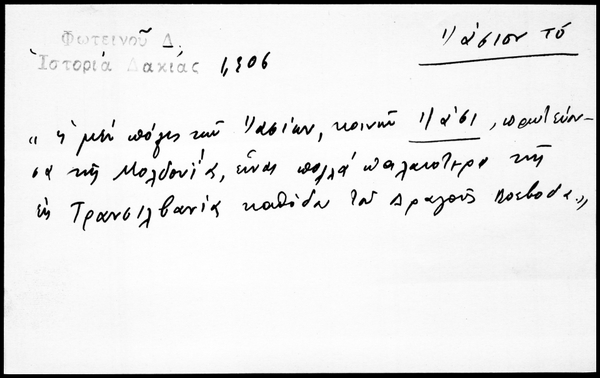 Φωτεινοῦ Δ.
Ἱστορία Δακίας 1,306
Ἰάσιον τό
"ἡ μὲν πόλις τῶν Ἰασίων, κοινῶς Ἰάσι, πρωτεύου-
σα τῆς Μολδοβίας, εἶναι πολλὰ παλαιοτέρα τῆς
ἐκ Τρανσιλβανίας καθόδου τοῦ Δραγοὺς Βοεβόδα."